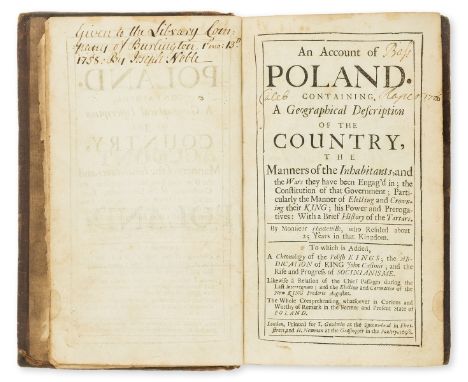 Given to the Library Com-
pany of Burlington 1 mo: 13th
1758. By Joseph Noble
An Account of
POLAND.
Caleb
CONTAINING,
A Geographical Description
OF THE
COUNTRY,
THE
Manners of the Inhabitants, and
the Wars they have been Engag'd in; the
Constitution of that Government; Parti-
cularly the Manner of Electing and Crown-
ing their KING; his Power and Preroga-
tives: With a Brief History of the Tartars.
By Monsieur who Resided about
25 Years in that Kingdom.
To which is Added,
A Chronology of the Polish KINGS; the AB-
DICATION of KING John Casimir; and the
Rise and Progress of SOCINIANISME.
Likewise a Relation of the Chief Passages during the
Last Interregnum; and the Election and Coronation of the
New KING Frederic Augustus.
The Whole Comprehending whatsoever is Curious and
Worthy of Remark in the Former and Present State of
POLAND.
London, Printed for T. Goodwin at the
and H. Newman at the Grashopper in the Poultry.